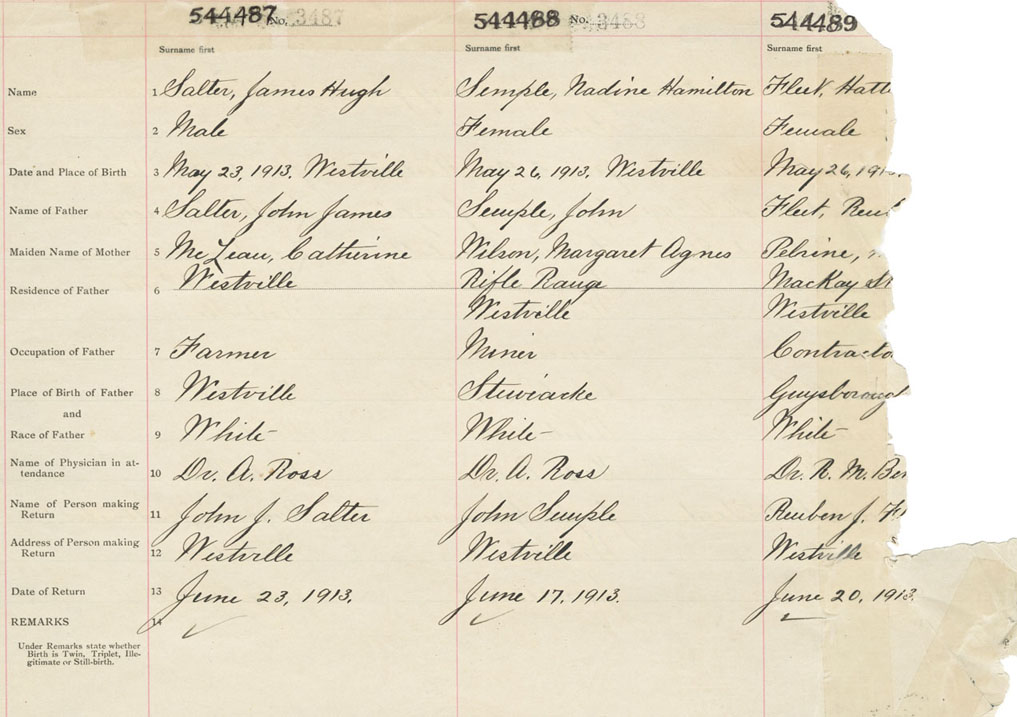 544487 No. 3487 544488 No. 3488 544489
Surname first Surname first Surname first
Name 1 Salter, James Hugh Semple, Nadine Hamilton Fleet, Hatt
Sex 2 Male Female Female
Date and Place of Birth 3 May 23, 1913. Westville May 26, 1913. Westville May 26, 191
Name of Father 4 Salter, John James Semple, John Fleet, Reu
Maiden Name of Mother 5 McLean, Catherine Wilson, Margaret Agnes Pelrine,
Residence of Father 6 Westville Rifle Range MacKay St
Westville Westville
Occupation of Father 7 Farmer Miner Contracto
Place of Birth of Father 8 Westville Stewiacke Guysboroug
and
Race of Father 9 White White White
Name of Physician in at-
tendance 10 Dr. A. Ross Dr. A. Ross Dr. R. M. Be
Name of Person making
Return 11 John J. Salter John Semple Reuben J. F
Address of Person making
Return 12 Westville Westville Westville
Date of Return 13 June 23, 1913. June 17, 1913. June 20, 1913.
REMARKS 14
Under Remarks state whether
Birth is Twin, Triplet, Ille-
gitimate or Still-birth.